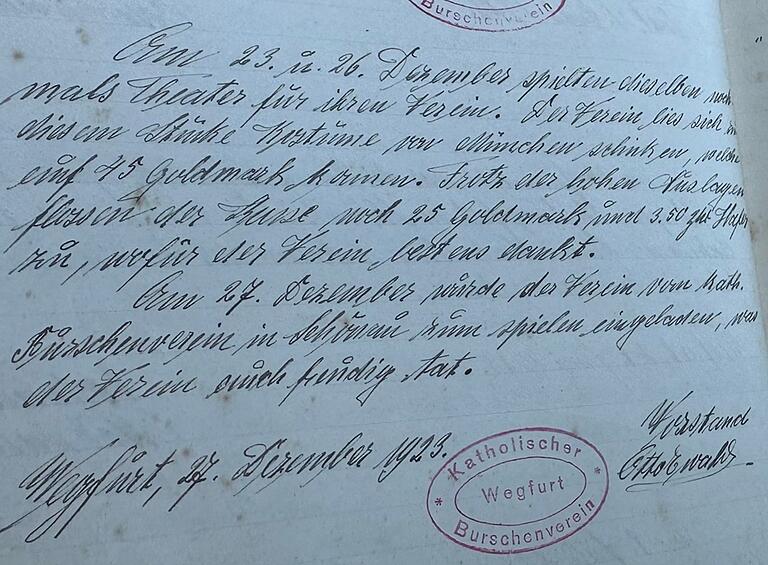 Burschenverein
Am 23. u. 26. Dezember spielten dieselben noch
mals Theater für ihren Verein. Der Verein lies sich zu
diesem Stücke Kostüme von München schicken, welche
auf 45 Goldmark kamen. Trotz der hohen Auslagen
flossen der Kasse noch 25 Goldmark und 3.50 zur
zu, wofür der Verein bestens dankt.
Am 27. Dezember wurde der Verein vom Kath.
Burschenverein in Schönau zum spielen eingeladen, was
der Verein auch freudig tat.
Wegfurt, 27. Dezember 1923.
Vorstand
Otto Ewald
* Katholischer *
Wegfurt
Burschenverein